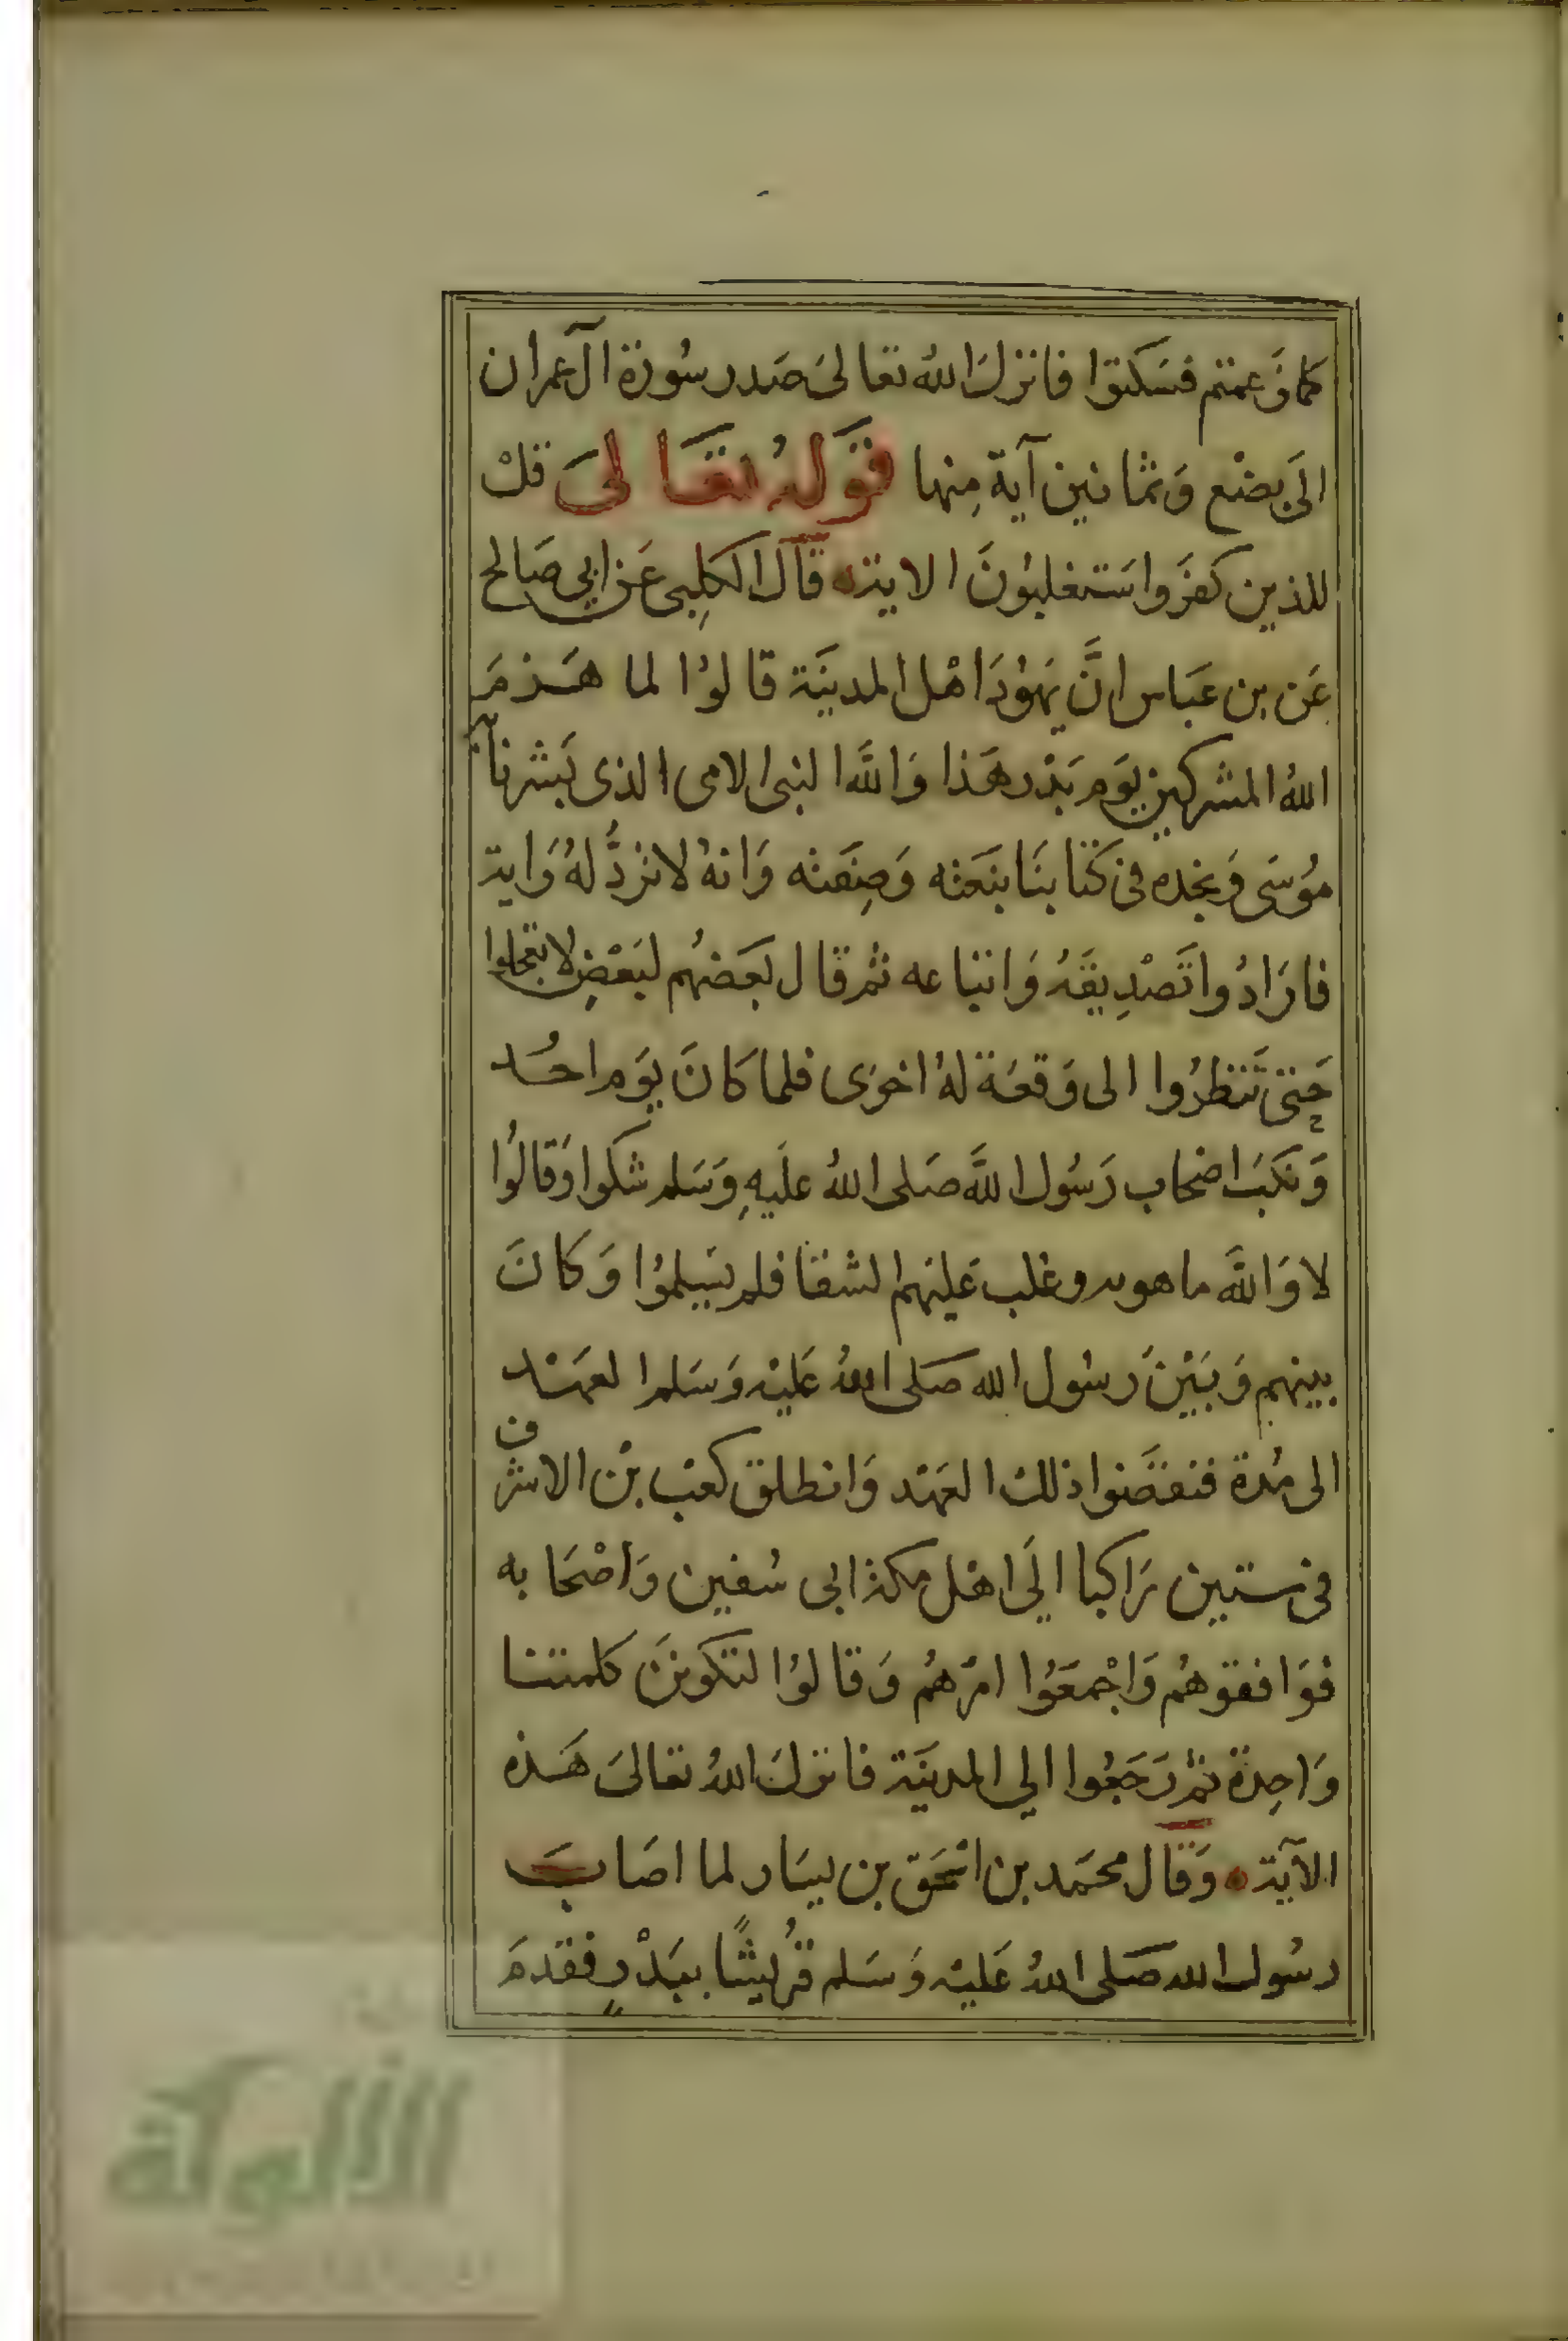 كما زعمتم فسكتوا فانزل الله تعالى صدر سورة ال عمران
الى بضع وثمانين آية منها قوله تعالى قل
للذين كفروا ستغلبون الاية قال الكلبى عن ابي صالح
عن بن عباس ان يهود اهل المدينة قالوا لما هزم
الله المشركين يوم بدر هذا والله النبى الامى الذى بشرنا به
موسى ونجده فى كتابنا بنعته وصفته وانه لا ترد له راية
فارادوا تصديقه واتباعه ثم قال بعضهم لبعض لا تعجلوا
حتى تنظروا الى وقعة له اخرى فلما كان يوم احد
ونكب اصحاب رسول الله صلى الله عليه وسلم شكوا وقالوا
لا والله ما هو به وغلب عليهم الشقا فلم يسلموا وكان
بينهم وبين رسول الله صلى الله عليه وسلم العهد
الى مدة فنقضوا ذلك العهد وانطلق كعب بن الاشرف
فى ستين راكبا الى اهل مكة ابى سفين واصحابه
فوافقوهم واجمعوا امرهم وقالوا لتكونن كلمتنا
واحدة ثم رجعوا الي المدينة فانزل الله تعالى هذه
الآية وقال محمد بن اسحق بن يسار لما اصاب
رسول الله صلى الله عليه وسلم قريشًا ببدر فقدم
الألوكة